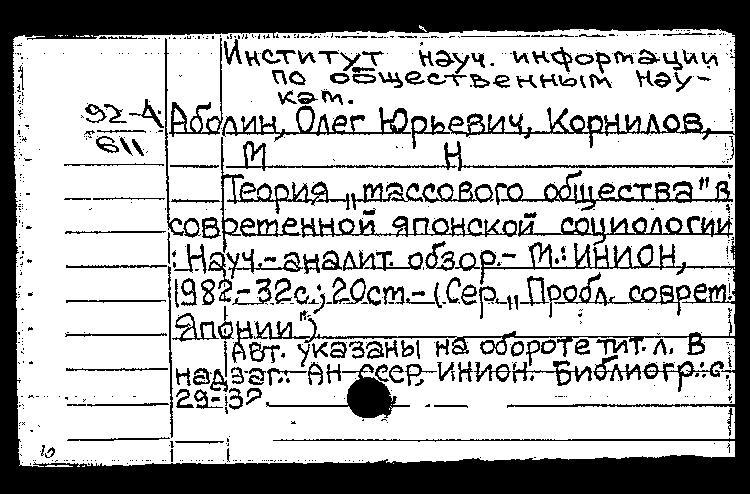 Институт науч. информации
по общественным нау-
кам.
92-4
611
Аболин, Олег Юрьевич, Корнилов,
М Н
Теория „массового общества" в
современной японской социологии
: Науч.-аналит. обзор.- М.: ИНИОН,
1982.-32с.; 20см.- (Сер. „Пробл. соврем.
Японии").
Авт. указаны на обороте тит. л. В
надзаг.: АН СССР, ИНИОН. Библиогр.: с.
29-32.
10